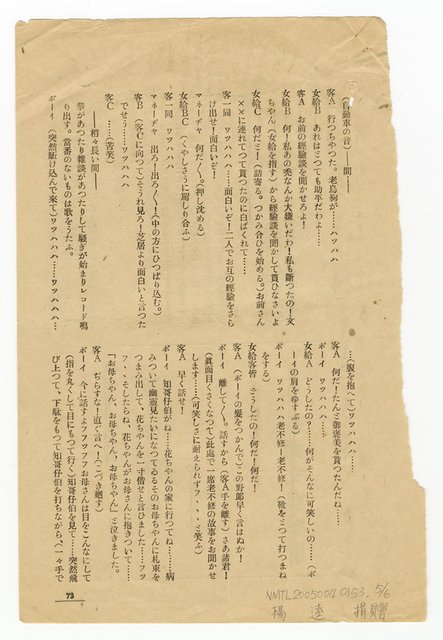 (自動車の音)――間――
客A 行つちやつた。老烏狗が……ハツハハ
女給B あれはとつても助平だわよ……
客A お前の經驗談を聞かせろよ!
女給B 何!私あの禿なんか大嫌いだわ!私も斷つたの!文
ちやん(女給を指す)から經驗談を聞かして貰ひなさいよ
女給C 何だと!(詰寄る。つかみ合ひを始める。)お前さん
××に連れてつて貰つたのに白ばくれて……
客一同 ワツハハハ……面白いぞ!二人でお互の經驗をさら
け出せ!面白いぞ!
マネーヂヤ 何だ/\〜(押し沈める)
女給BC (くやしさうに罵しり合ふ)
客一同 ワツハハハ
マネーヂヤ 出ろ!出ろ/\!(中の方にひつぱり込む。)
客B (客Cに向つて)それ見ろ!芝居より面白いと言つた
でせう……ワツハハハ
客C ……(苦笑)
――稍々長い間――
拳があつたり雜談があつたりして騷ぎが始まりレコード鳴
り出す。當番のないものは歌をうたふ。
ボーイ (突然駈け込んで來て)ワツハハハ……ワツハハハ
…(腹を抱へて)ワツハハハ……
客A 何だ!たんと御褒美を貰つたんだね……
ボーイ ワツハハハハ……
女給A どうしたの?……何がそんなに可笑しいの……(ボ
ーイの肩をゆすぶる)
ボーイ ワツハハハハ老不修!老不修!(靴をとつて打つまね
をする)
女給客皆 どうしたの!何だ!何だ!
客A (ボーイの髮をつかんで)この野郎早く言はぬか!
ボーイ 離して/\。話すから(客A手を離す)さあ諸君!
(眞面目くさくなつて)此處で一席老不修の故事をお聞かせ
します!……(可笑しさに耐えられずフ、、、と笑ふ)
客A 早く話せ!
ボーイ 知哥仔伯がね……花ちやんの家に行つてね……病
みついて幽靈見たいになつてゐるそのお母ちやんに札束を
つまみ出して、花ちやんを一寸借せと言ひました……フツ
フ……そしたらね、花ちやんがお母さんに抱きついて……
「お母ちやん、お母ちやん、お母ちやん」と泣きました。
客A ぢらすな!直ぐ言へ!(こづき廻す)
ボーイ 今に話すよフフフフお母さんは目をこんなにして
(指を丸くして目にもつて行く)知哥仔伯を見て……突然飛
び上つて、下駄をもつて知哥仔伯を打ちながら、(一々手で
73
NMTL20050040153. 5/6
楊逵 捐贈